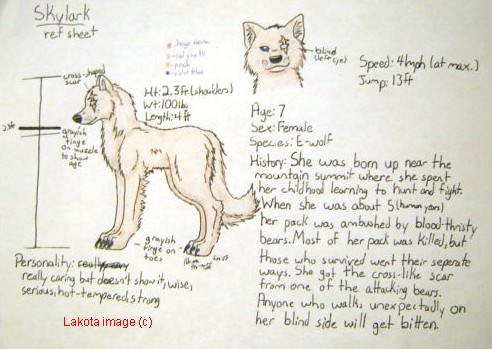 Skylark
ref sheet
cross-shaped
scar
grayish
tinge
on muzzle
to show
age
Ht: 2.3ft (shoulders)
Wt: 100lb
Length: 4ft
blind
(left eye)
Speed: 41mph (at max.)
Jump: 13ft
Age: 7
Sex: Female
Species: E-wolf
History: She was born up near the
mountain summit where she spent
her childhood learning to hunt and fight.
When she was about 5 (human years)
her pack was ambushed by blood-thristy
bears. Most of her pack was killed, but
those who survived went their seperate
ways. She got the cross-like scar
from one of the attacking bears.
Anyone who walks unexpectadly on
her blind side will get bitten.
grayish
tinge on
toes
Personality:
really caring but doesn't show it, wise,
serious, hot-tempered, strong
Lakota image (c)